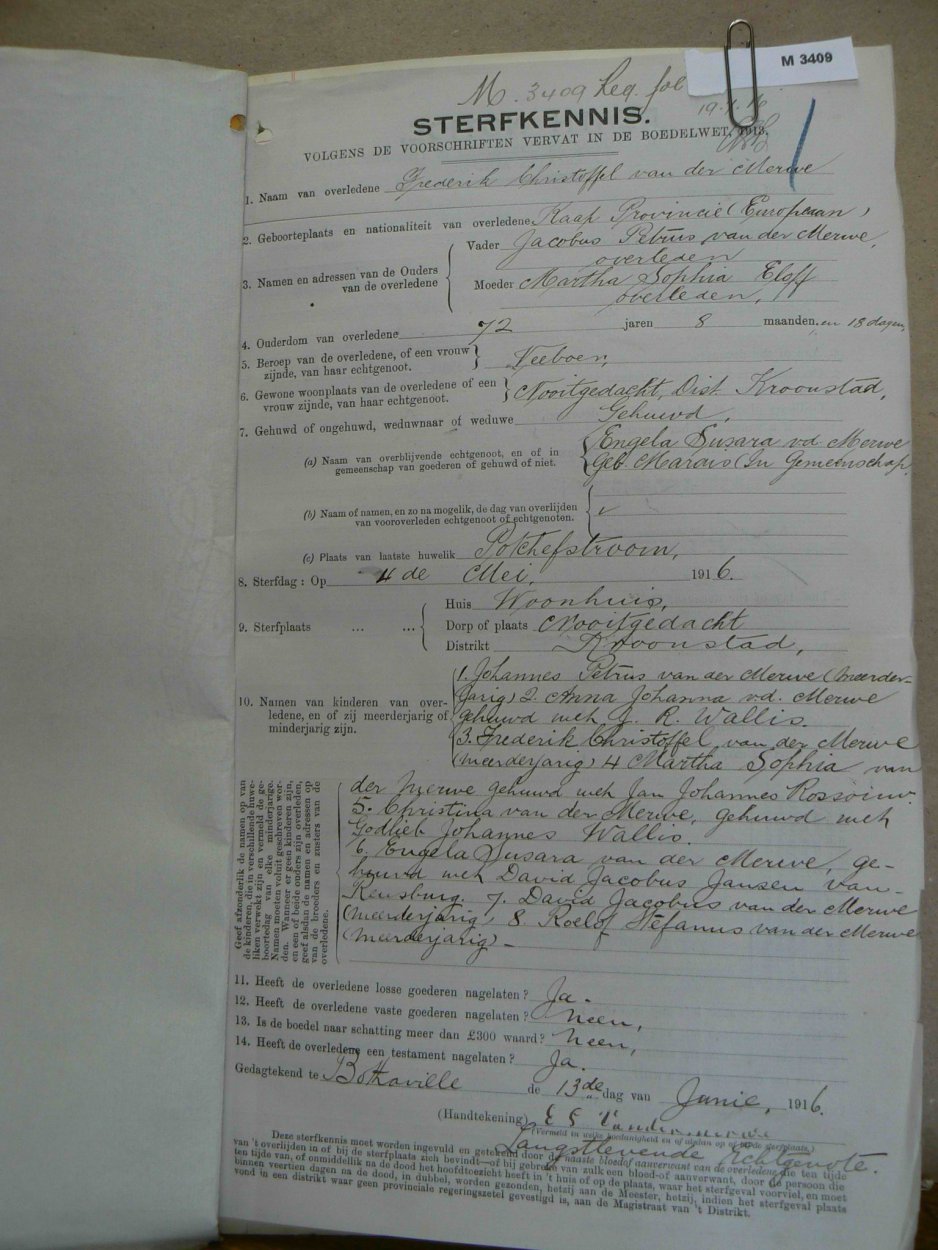 M 3409
M. 3409 Reg. fol
19.7.16
STERFKENNIS.
VOLGENS DE VOORSCHRIFTEN VERVAT IN DE BOEDELWET, 1913.
1. Naam van overledene Frederik Christoffel van der Merwe
2. Geboorteplaats en nationaliteit van overledene Kaap Provincie (Europeaan)
3. Namen en adressen van de Ouders van de overledene
Vader Jacobus Petrus van der Merwe,
overleden
Moeder Martha Sophia Eloff
overleden,
4. Ouderdom van overledene 72 jaren 8 maanden, en 18 dagen,
5. Beroep van de overledene, of een vrouw
zijnde, van haar echtgenoot. Veeboer,
6. Gewone woonplaats van de overledene of een
vrouw zijnde, van haar echtgenoot. Nooitgedacht, Dist. Kroonstad,
7. Gehuwd of ongehuwd, weduwnaar of weduwe Gehuwd,
(a) Naam van overblijvende echtgenoot, en of in
gemeenschap van goederen of gehuwd of niet.
Engela Susara vd Merwe
Geb. Marais (In Gemeenschap
(b) Naam of namen, en zo na mogelik, de dag van overlijden
van vooroverleden echtgenoot of echtgenoten.
(c) Plaats van laatste huwelik Potchefstroom,
8. Sterfdag: Op 4 de Mei, 1916.
9. Sterfplaats ... ...
Huis Woonhuis,
Dorp of plaats Nooitgedacht
Distrikt Kroonstad,
10. Namen van kinderen van over-
ledene, en of zij meerderjarig of
minderjarig zijn.
1. Johannes Petrus van der Merwe (Meerder-
jarig) 2. Anna Johanna vd. Merwe
gehuwd meh J. R. Wallis.
3. Frederik Christoffel van der Merwe
(meerderjarig) 4 Martha Sophia van
der Merwe gehuwd meh Jan Johannes Rossouw.
5. Christina van der Merwe, gehuwd meh
Godlieb Johannes Wallis.
6. Engela Susara van der Merwe, ge-
huwd meh David Jacobus Jansen van
Rensburg. 7. David Jacobus van der Merwe
(meerderjarig), 8. Roelof Stefanus van der Merwe
(meerderjarig) -
Geef afzonderlik de namen op van
de kinderen, die in verschillende huwe-
liken verwekt zijn en vermeld de ge-
boortedag van elke minderjarige.
Namen moeten voluit geschreven wor-
den. Wanneer er geen kinderen zijn,
en een of beide ouders zijn overleden,
geef alsdan de namen en adressen op
van de broeders en zusters van de
overledene.
11. Heeft de overledene losse goederen nagelaten? Ja.
12. Heeft de overledene vaste goederen nagelaten? Neen,
13. Is de boedel naar schatting meer dan £300 waard? Neen,
14. Heeft de overledene een testament nagelaten? Ja.
Gedagtekend te Bothaville de 13de dag van Junie, 1916.
(Handtekening) E S Vandermerwe
(Vermeld in welke hoedanigheid en of alsdan op of in de sterfplaats.)
Langstlevende Echtgenote.
Deze sterfkennis moet worden ingevuld en getekend door de naaste bloed of aanverwant van de overledene, die ten tijde
van 't overlijden in of bij de sterfplaats zich bevindt—of bij gebreke van zulk een bloed-of aanverwant, door de persoon die
ten tijde van, of onmiddellik na de dood het hoofdtoezicht heeft in 't huis of op de plaats, waar het sterfgeval voorviel, en moet
binnen veertien dagen na de dood, in dubbel, worden gezonden, hetzij aan de Meester, hetzij, indien het sterfgeval plaats
vond in een distrikt waar geen provinciale regeringszetel gevestigd is, aan de Magistraat van 't Distrikt.